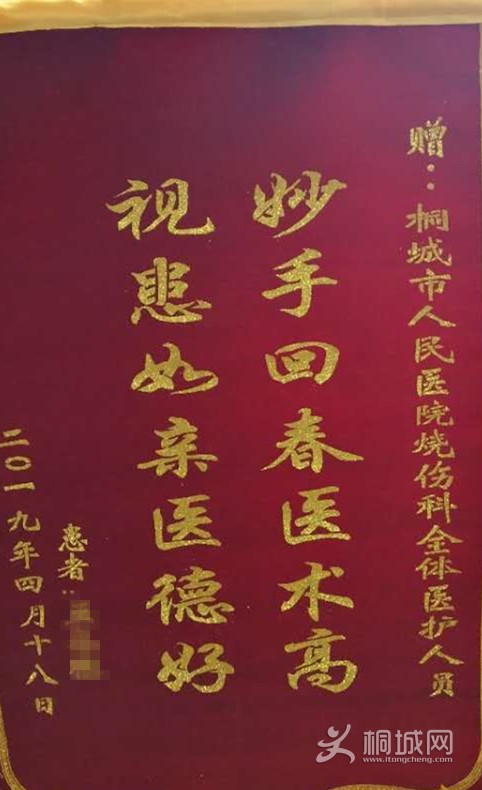 赠：桐城市人民医院烧伤科全体医护人员
妙手回春医术高
视患如亲医德好
患者：
二〇一九年四月十八日
桐城网
www.itongcheng.com